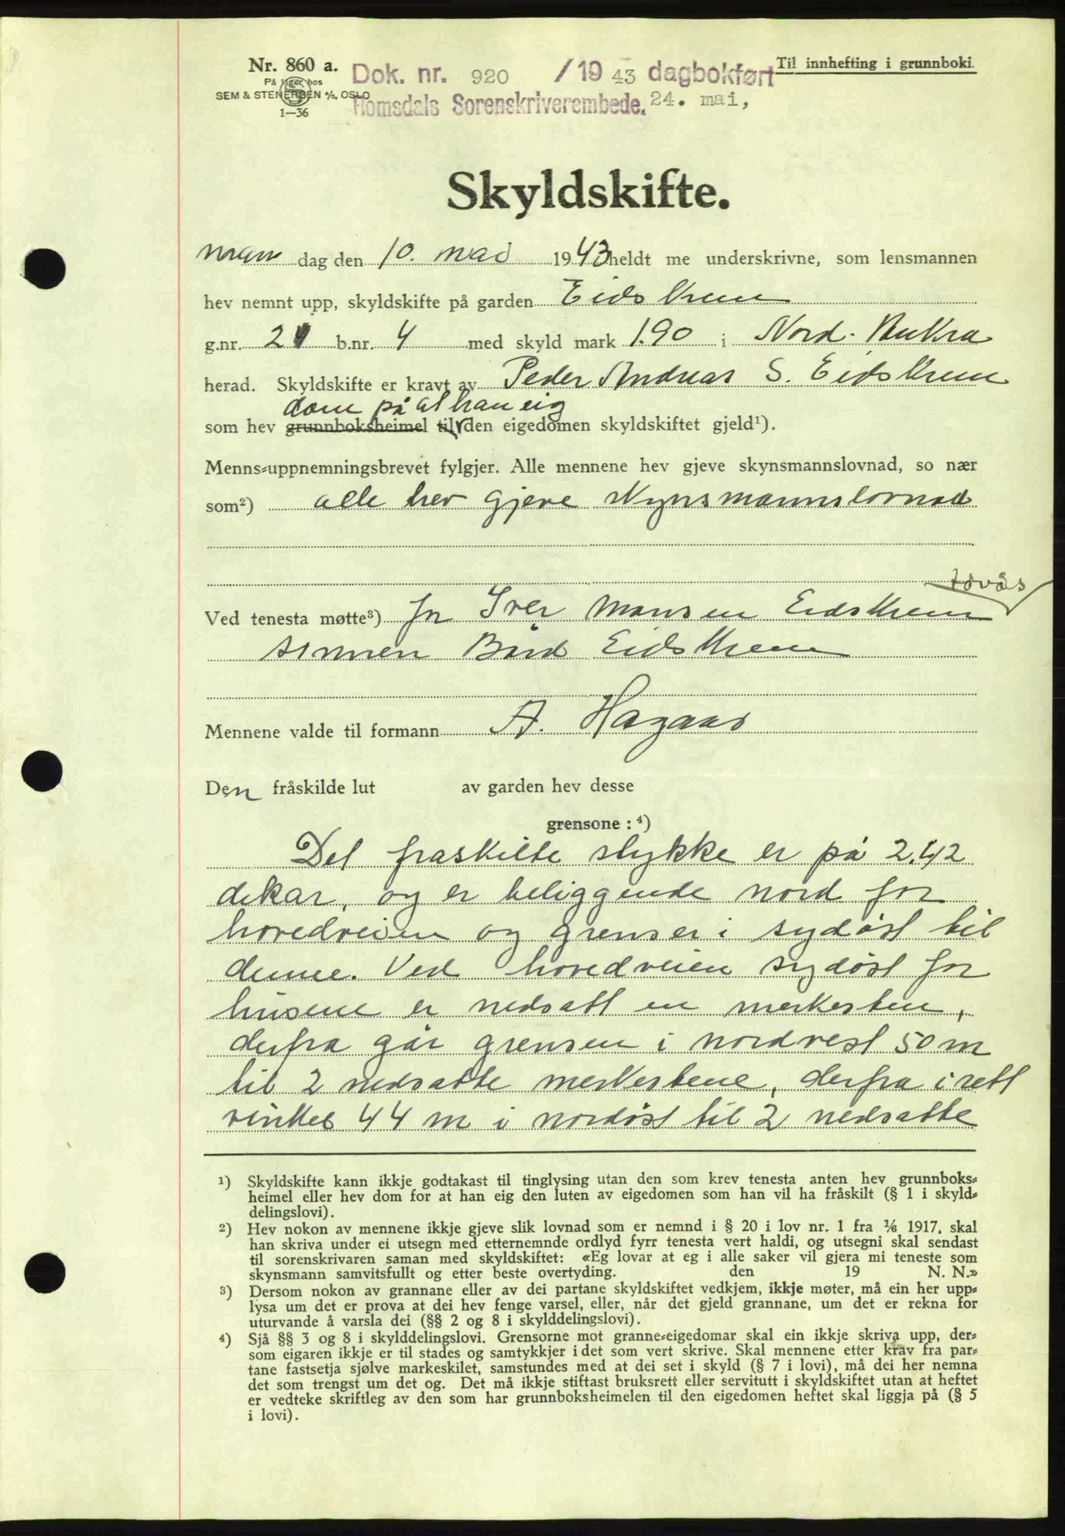 Nr. 860 a.
På lager hos
SEM & STENERSEN A/S, OSLO
1—36
Dok. nr. 920 /19 43 dagbokført
Romsdals Sorenskriverembede. 24. mai,
Til innhefting i grunnboki.
Skyldskifte.
dag den 10. mai 1943 heldt me underskrivne, som lensmannen
hev nemnt upp, skyldskifte på garden Eidskrem
g.nr. 21 b.nr. 4 med skyld mark 1.90 i Nord-Aukra
herad. Skyldskifte er kravt av Peder Andreas S. Eidskrem
dom på at han eig
som hev grunnboksheimel til den eigedomen skyldskiftet gjeld¹).
Menns-uppnemningsbrevet fylgjer. Alle mennene hev gjeve skynsmannslovnad, so nær
som²) alle hev gjeve skynsmannslovnad
Ved tenesta møtte³) for Iver Monsen Eidskrem
sønnen Bård Eidskrem
Mennene valde til formann A. Hagaas
Den fråskilde lut av garden hev desse
grensone : ⁴)
Det fraskilte stykke er på 2.42
dekar, og er beliggende nord for
hovedveien og grenser i sydøst til
denne. Ved hovedveien sydøst for
husene er nedsatt en merkesten,
derfra går grensen i nordvest 50 m
til 2 nedsatte merkestene, derfra i rett
vinkel 44 m i nordøst til 2 nedsatte
¹) Skyldskifte kann ikkje godtakast til tinglysing utan den som krev tenesta anten hev grunnboks-
heimel eller hev dom for at han eig den luten av eigedomen som han vil ha fråskilt (§ 1 i skyld-
delingslovi).
²) Hev nokon av mennene ikkje gjeve slik lovnad som er nemnd i § 20 i lov nr. 1 fra ¹⁄₆ 1917, skal
han skriva under ei utsegn med etternemnde ordlyd fyrr tenesta vert haldi, og utsegni skal sendast
til sorenskrivaren saman med skyldskiftet: «Eg lovar at eg i alle saker vil gjera mi teneste som
skynsmann samvitsfullt og etter beste overtyding. den 19 N. N.»
³) Dersom nokon av grannane eller av dei partane skyldskiftet vedkjem, ikkje møter, må ein her upp-
lysa um det er prova at dei hev fenge varsel, eller, når det gjeld grannane, um det er rekna for
uturvande å varsla dei (§§ 2 og 8 i skylddelingslovi).
⁴) Sjå §§ 3 og 8 i skylddelingslovi. Grensorne mot granne-eigedomar skal ein ikkje skriva upp, der-
som eigaren ikkje er til stades og samtykkjer i det som vert skrive. Skal mennene etter krav fra par-
tane fastsetja sjølve markeskilet, samstundes med at dei set i skyld (§ 7 i lovi), må dei her nemna
det som trengst um det og. Det må ikkje stiftast bruksrett eller servitutt i skyldskiftet utan at heftet
er vedteke skriftleg av den som har grunnboksheimelen til den eigedomen heftet skal liggja på (§ 5
i lovi).